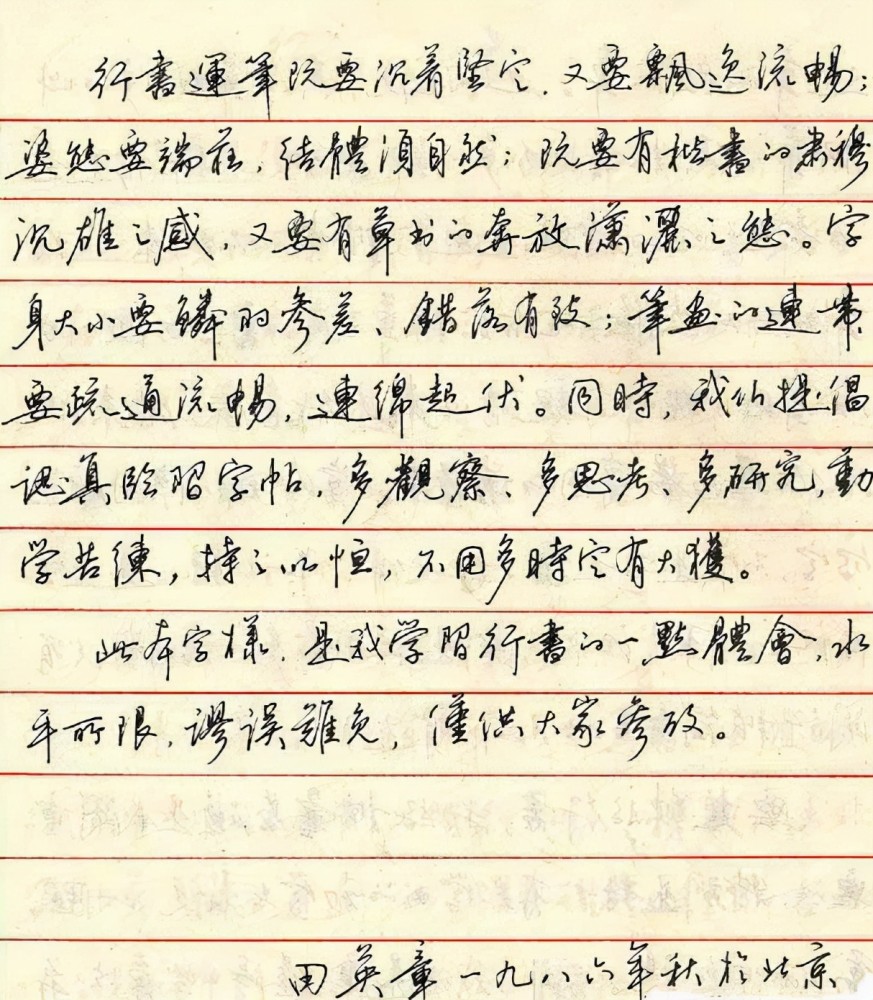 行書運筆既要沉着堅定，又要飄逸流暢；
姿態要端莊，結體須自然；既要有楷書的肅穆
沉雄之感，又要有草书的奔放瀟灑之態。字
身大小要鱗的參差、錯落有致；筆畫的連带、
要疏通流暢，連綿起伏。同時，我们提倡
認真臨習字帖，多觀察、多思考、多研究，勤
学苦練，持之以恒，不用多時定有大獲。
此本字樣，是我学習行書的一點體會，水
平所限，謬误難免，僅供大家參攷。
田英章一九八六年秋於北京